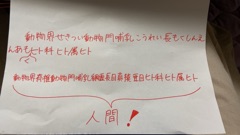 動物界せきつい動物門哺乳こうれい長もくしんえ
んあもヒト科ヒト属ヒト
動物界脊椎動物門哺乳綱霊長目真猿亜目ヒト科ヒト属ヒト
人間!